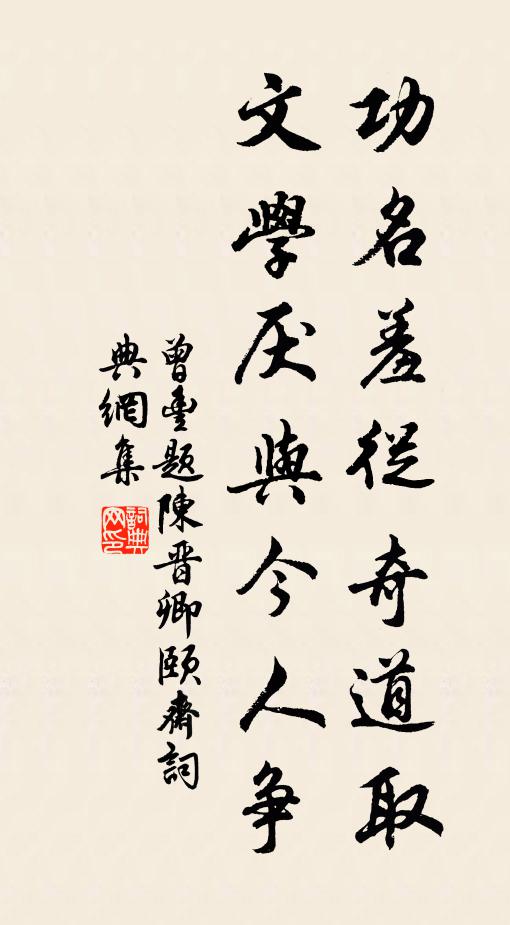 功名羞從奇道取
文學厌與今人争
曾豐題陳晋卿頤齋詞
典網集
詞典網印